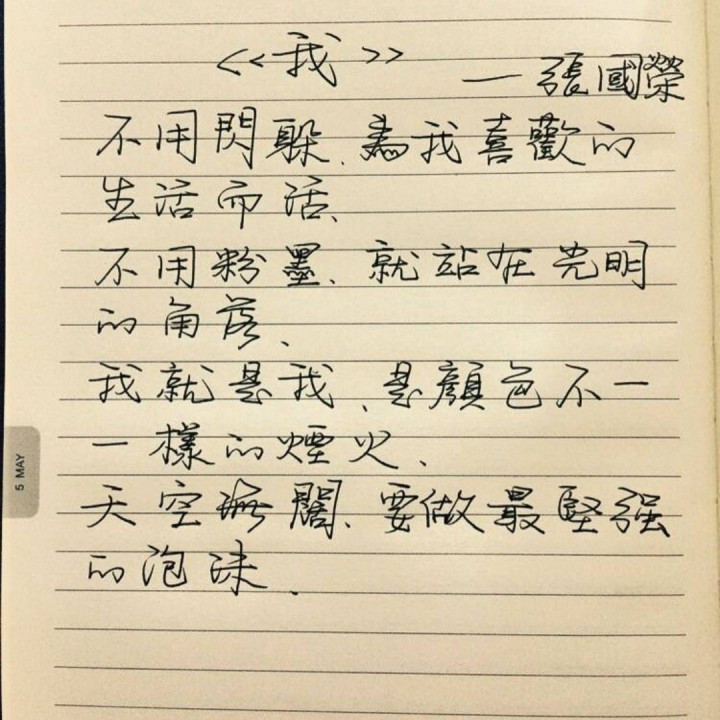 <<我>> — 張國榮
不用閃躲、為我喜歡的
生活而活、
不用粉墨、就站在光明
的角落、
我就是我、是顏色不一
一樣的煙火、
天空海闊、要做最堅强
的泡沫、
5 MAY